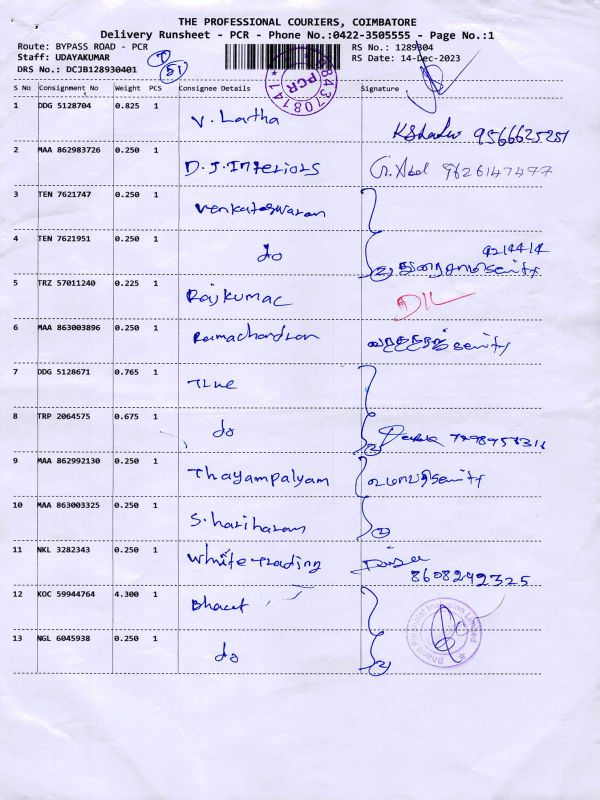 THE PROFESSIONAL COURIERS, COIMBATORE
Delivery Runsheet - PCR - Phone No.:0422-3505555 - Page No.:1
Route: BYPASS ROAD - PCR
Staff: UDAYAKUMAR
DRS No.: DCJB128930401
T
51
RS No.: 1289304
RS Date: 14-Dec-2023
PCR
S No Consignment No Weight PCS Consignee Details Signature
1 DDG 5128704 0.825 1 V. Lartha
9566625251
2 MAA 862983726 0.250 1 D.J. Interiors
9626147497
3 TEN 7621747 0.250 1 Venkateswaran
4 TEN 7621951 0.250 1 do 2
5 TRZ 57011240 0.225 1 Rajkumar DIL
6 MAA 863003896 0.250 1 Ramachandran
7 DDG 5128671 0.765 1 True
8 TRP 2064575 0.675 1 do 2
9 MAA 862992130 0.250 1 Thayampalyam
10 MAA 863003325 0.250 1 S. hariharan 2
11 NKL 3282343 0.250 1 White trading
8608292325
12 KOC 59944764 4.300 1 Bharat
13 NGL 6045938 0.250 1 do 2
Bharat Financial Inclusion Limited